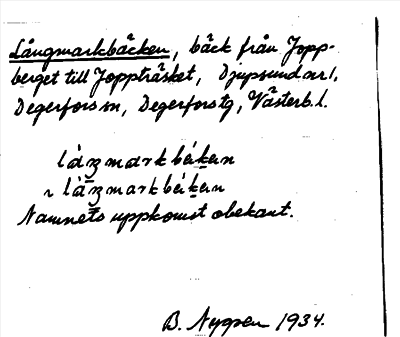 Långmarkbäcken, bäck från Jopp-
berget till Joppträsket, Djupsund nr 1,
Degerfors sn, Degerfors tg, Västerb. l.
làŋmarkbék̲en
~ làŋ̲markbék̲en
Namnets uppkomst obekant.
B. Nygren 1934.